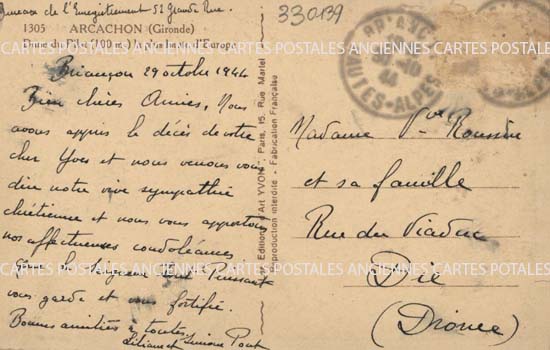 Bureau de l'Enregistrement 52 Grande Rue.
1305 ARCACHON (Gironde)
Dune du Pilat (100 m) la plus haute d'Europe
Briançon 29 octobre 1944
Bien chères Amies, Nous
avons appris le décès de votre
cher Yves et nous venons vous
dire notre vive sympathie
chrétienne et nous vous apportons
nos affectueuses condoléances
Que le Seigneur Tout Puissant
vous garde et vous fortifie.
Bonnes amitiés à toutes.
Liliane et Simone Pont
Editions d'Art YVON, Paris, 15, Rue Martel
Reproduction interdite - Fabrication Française
330139
BRIANÇON
HAUTES-ALPES
44
Madame Vve Roussin
et sa famille
Rue du Viaduc
Die
(Drome)
CARTES POSTALES ANCIENNES CARTES POSTALES ANCIENNES CARTES POSTALES
CARTES POSTALES ANCIENNES CARTES POSTALES ANCIENNES CARTES POSTALES